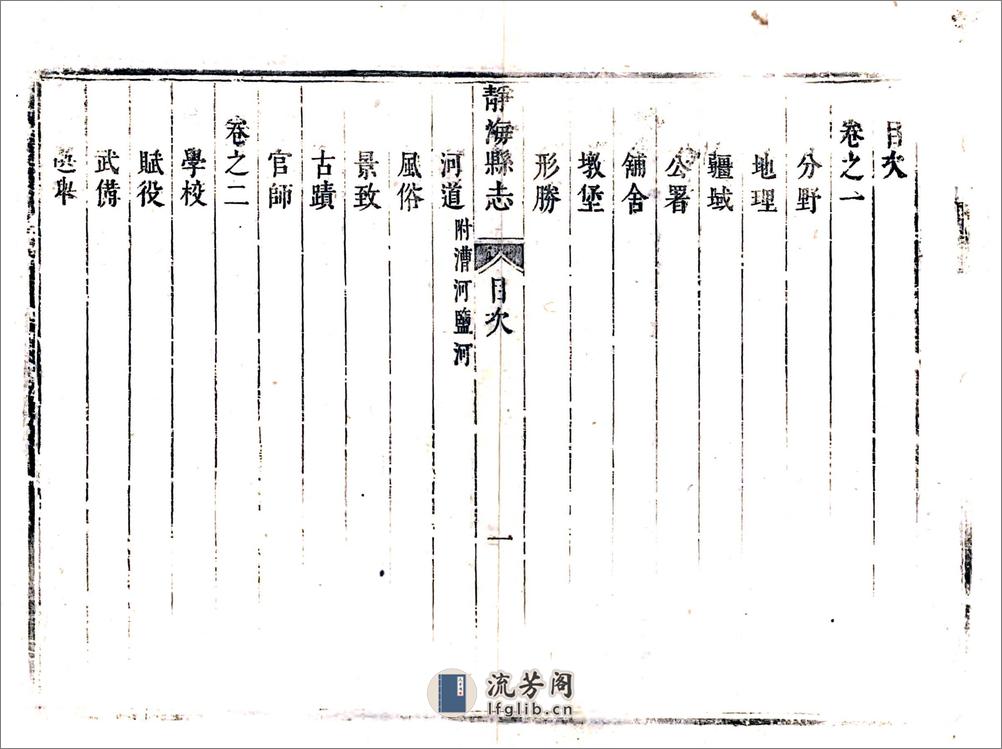 目次
卷之一
分野
地理
疆域
公署
舖舍
墩堡
形勝
靜海縣志 目次 一
河道 附漕河鹽河
風俗
景致
古蹟
官師
卷之二
學校
賦役
武備
選舉
流芳阁
lfglib.cn